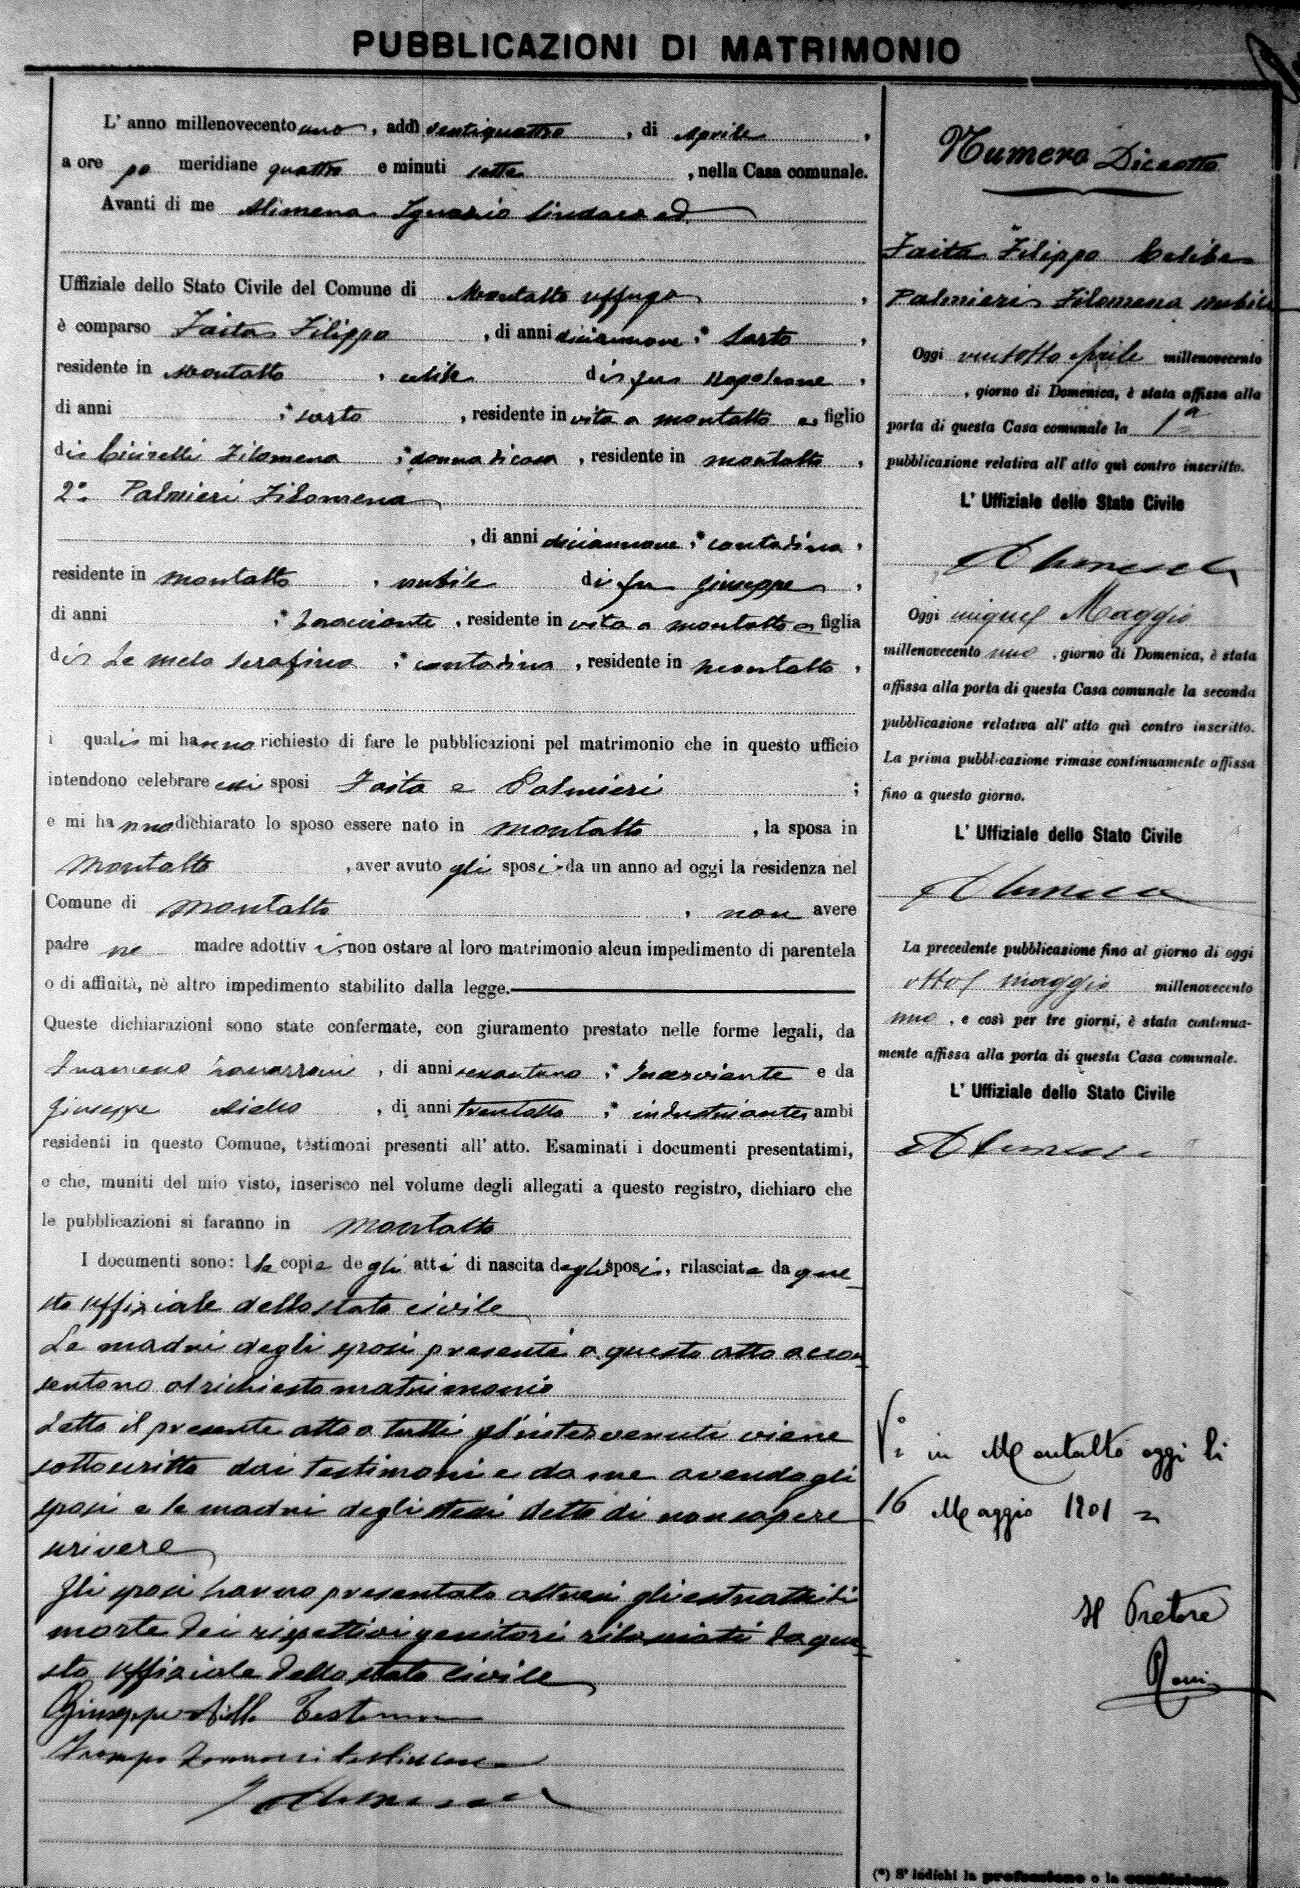 PUBBLICAZIONI DI MATRIMONIO
L' anno millenovecento uno, addì ventiquattro, di Aprile,
a ore po meridiane quattro e minuti sette, nella Casa comunale.
Avanti di me Alimena Ignazio Sindaco ed
Uffiziale dello Stato Civile del Comune di Montalto Uffugo,
è comparso Faita Filippo, di anni diciannove; * Sarto,
residente in Montalto, celibe di fu Napoleone,
di anni ; * sarto, residente in vita a Montalto e figlio
di Cicirelli Filomena ; * donna di casa, residente in Montalto,
2° Palmieri Filomena
, di anni diciannove; * contadina,
residente in Montalto, nubile di fu Giuseppe,
di anni ; * bracciante, residente in vita a Montalto e figlia
di De Melo Serafina ; * contadina, residente in Montalto,
i quali mi hanno richiesto di fare le pubblicazioni pel matrimonio che in questo ufficio
intendono celebrare essi sposi Faita e Palmieri ;
e mi hanno dichiarato lo sposo essere nato in Montalto, la sposa in
Montalto, aver avuto gli sposi da un anno ad oggi la residenza nel
Comune di Montalto, non avere
padre ne madre adottivi, non ostare al loro matrimonio alcun impedimento di parentela
o di affinità, nè altro impedimento stabilito dalla legge.
Queste dichiarazioni sono state confermate, con giuramento prestato nelle forme legali, da
, di anni sessantuno; * Inserviente e da
Giuseppe Aiello, di anni trentotto; * industriante, ambi
residenti in questo Comune, testimoni presenti all' atto. Esaminati i documenti presentatimi,
e che, muniti del mio visto, inserisco nel volume degli allegati a questo registro, dichiaro che
le pubblicazioni si faranno in Montalto
I documenti sono: le copie degli atti di nascita degli sposi, rilasciate da que=
sto uffiziale dello stato civile
Le madri degli sposi presenti a questo atto accon=
sentono al richiesto matrimonio
Letto il presente atto a tutti gl'intervenuti viene
sottoscritto dai testimoni e da me avendo gli
sposi e le madri degli stessi detto di non sapere
scrivere
Gli sposi hanno presentato altresì gli estratti di
morte dei rispettivi genitori rilasciati da que=
sto uffiziale dello stato civile
Giuseppe Aiello Testimone
Testimone
Numero Diciotto
Faita Filippo Celibe
Palmieri Filomena nubile
Oggi ventotto Aprile millenovecento
, giorno di Domenica, è stata affissa alla
porta di questa Casa comunale la 1ª
pubblicazione relativa all' atto quì contro inscritto.
L' Uffiziale dello Stato Civile
Oggi cinque Maggio
millenovecento uno, giorno di Domenica, è stata
affissa alla porta di questa Casa comunale la seconda
pubblicazione relativa all' atto quì contro inscritto.
La prima pubblicazione rimase continuamente affissa
fino a questo giorno.
L' Uffiziale dello Stato Civile
La precedente pubblicazione fino al giorno di oggi
otto maggio millenovecento
uno, e così per tre giorni, è stata continua-
mente affissa alla porta di questa Casa comunale.
L' Uffiziale dello Stato Civile
V° in Montalto oggi li
16 Maggio 1901
Il Pretore
(*) S' indichi la professione o la condizione.